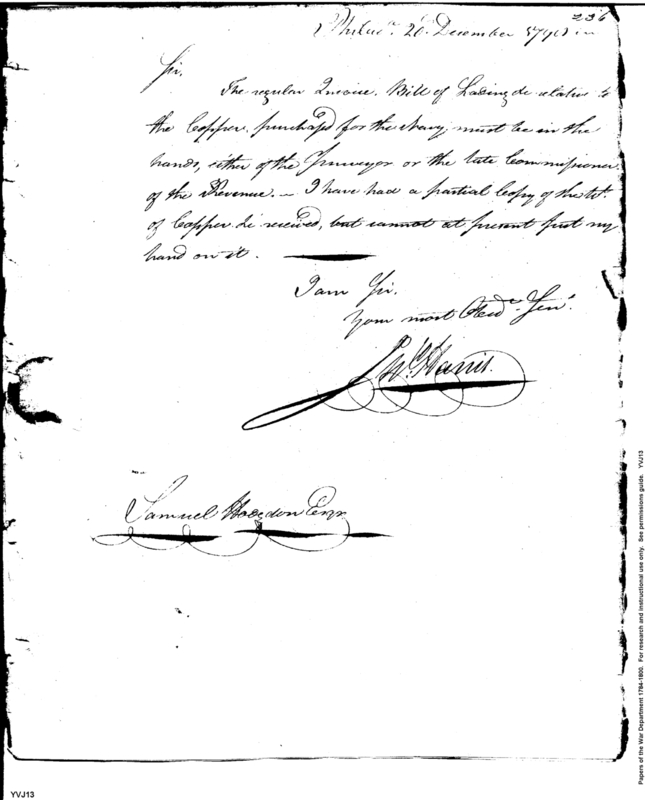 236
Philada. 26 December 1798
Sir,
The regular Invoice, Bill of Lading &c relative to
the Copper, purchased for the Navy, must be in the
hands, either of the Purveyor or the late Commissioner
of the Revenue. — I have had a partial Copy of the Wt.
of Copper &c received, but cannot at present put my
hand on it.
I am Sir.
Your most Obedt. Servt.
Jno. Harris.
Samuel Hodgdon Esqr
YVJ13
Papers of the War Department 1784-1800. For research and instructional use only. See permissions guide. YVJ13